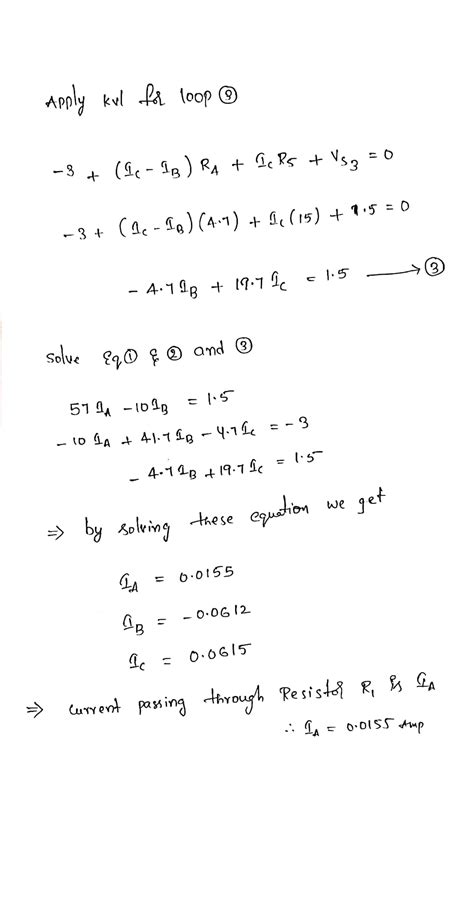 Apply kvl for loop ③
-3 + (I_C - I_B) R_4 + I_C R_5 + V_S3 = 0
-3 + (I_C - I_B)(4.7) + I_C(15) + 1.5 = 0
- 4.7 I_B + 19.7 I_C = 1.5 ⟶ ③
solve Eq① & ② and ③
57 I_A - 10 I_B = 1.5
- 10 I_A + 41.7 I_B - 4.7 I_C = - 3
- 4.7 I_B + 19.7 I_C = 1.5
⇒ by solving these equation we get
I_A = 0.0155
I_B = - 0.0612
I_C = 0.0615
⇒ current passing through Resistor R_1 is I_A
∴ I_A = 0.0155 Amp